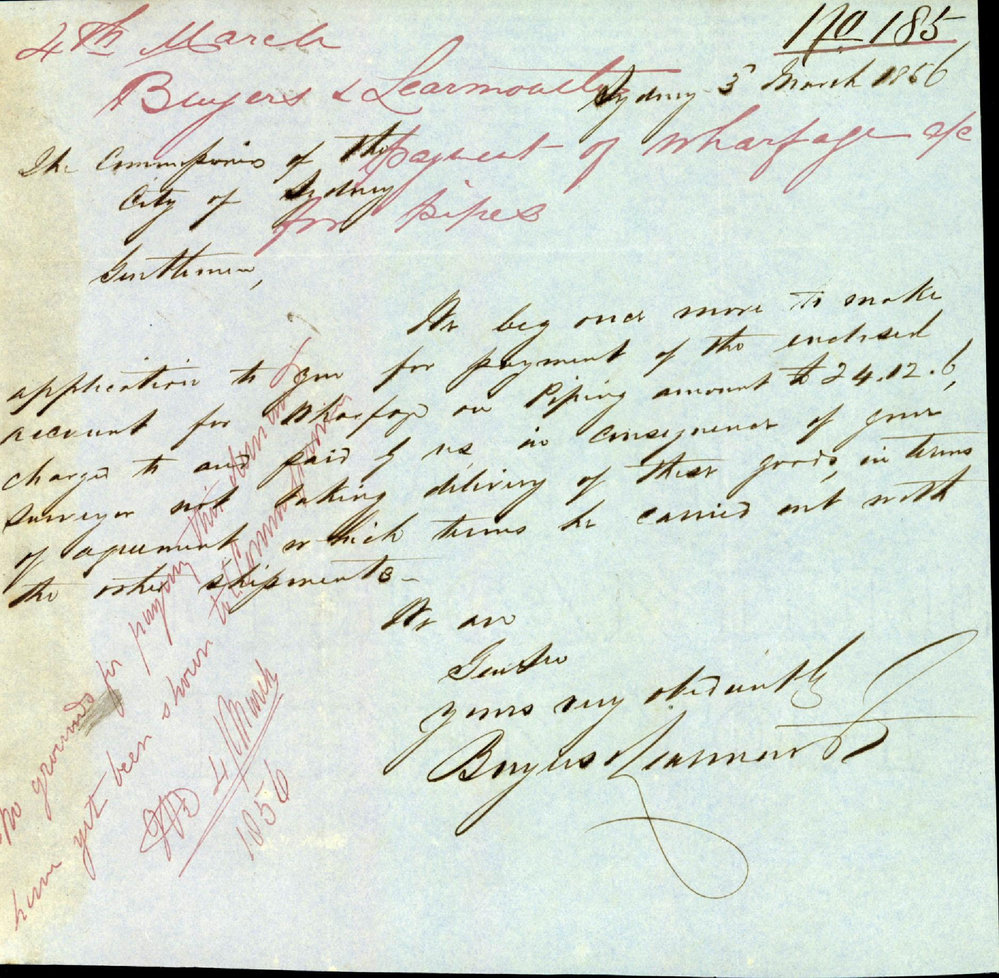 No 185
4th March
Buyers & Learmonth
payment of wharfage a/c
for pipes
Sydney 3 March 1856
The Commissrs of the
City of Sydney
Gentlemen,
We beg once more to make
application to you for payment of the enclosed
account for Wharfage on Piping amount to 24.12.6,
charged to and paid by us, in consequence of your
surveyor not taking delivery of these goods, in terms
of agreement, which terms he carried out with
the other shipments -
We are
Gent
Yours very obediently
Buyers & Learmonth
No grounds for paying this demand
have yet been shown to the Commissioners
4 March
1856